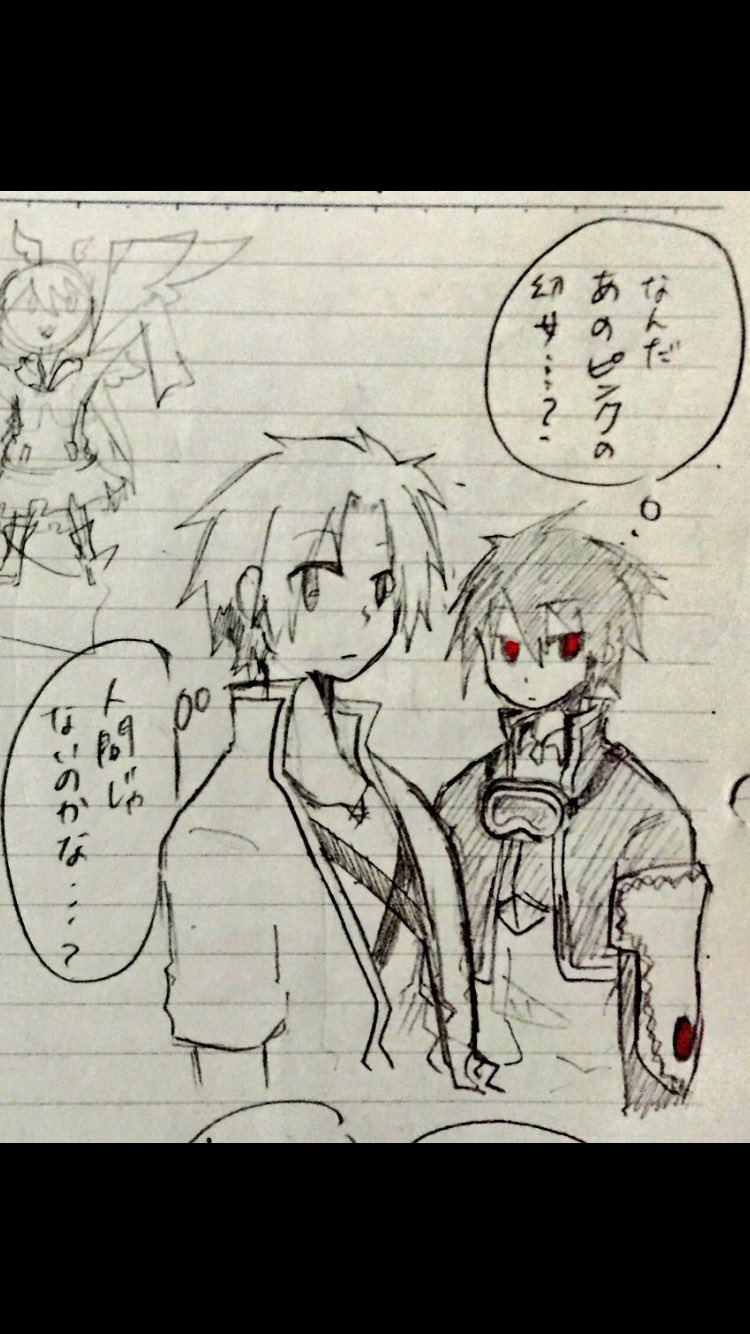 なんだ
あのピンクの
幼女…?
人間じゃ
ないのかな…?